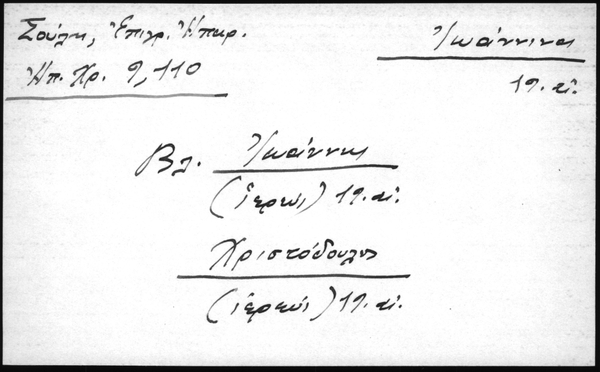 Σούλη, Ἐπιγρ. Ἠπειρ.
Ἠπ. Χρ. 9, 110
Ἰωάννινα
19. αἰ.
Βλ. Ἰωάννης
(ἱερεύς) 19. αἰ.
Χριστόδουλος
(ἱερεύς) 19. αἰ.